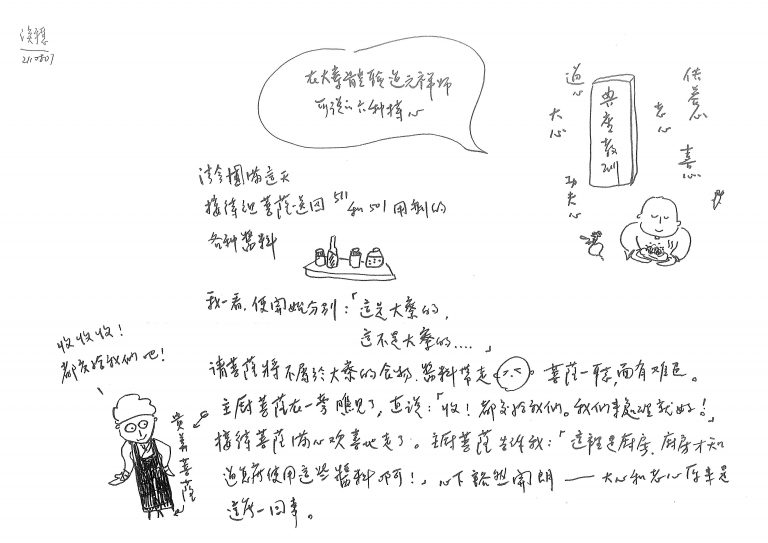 演穩
2110807
在大寮體驗道元禪師
所說的六種持心
道心
大心
功夫心
典座教訓
老心
供養心
喜心
法會圓滿這天
接待組菩薩送回511和501用剩的
各種醬料
我一看，便開始分別：「這是大寮的，
這不是大寮的....」
請菩薩將不屬於大寮的食物、醬料帶走 菩薩一聽，面有難色。
主廚菩薩在一旁聽見了，直說：「收！都交給我們。我們來處理就好！」
接待菩薩滿心歡喜地走了。主廚菩薩告訴我：「這裡是廚房，廚房才知
道怎麼使用這些醬料啊！」心下豁然開朗——大心和老心原來是
這麼一回事。
收收收！
都交給我們吧！
貴美菩薩